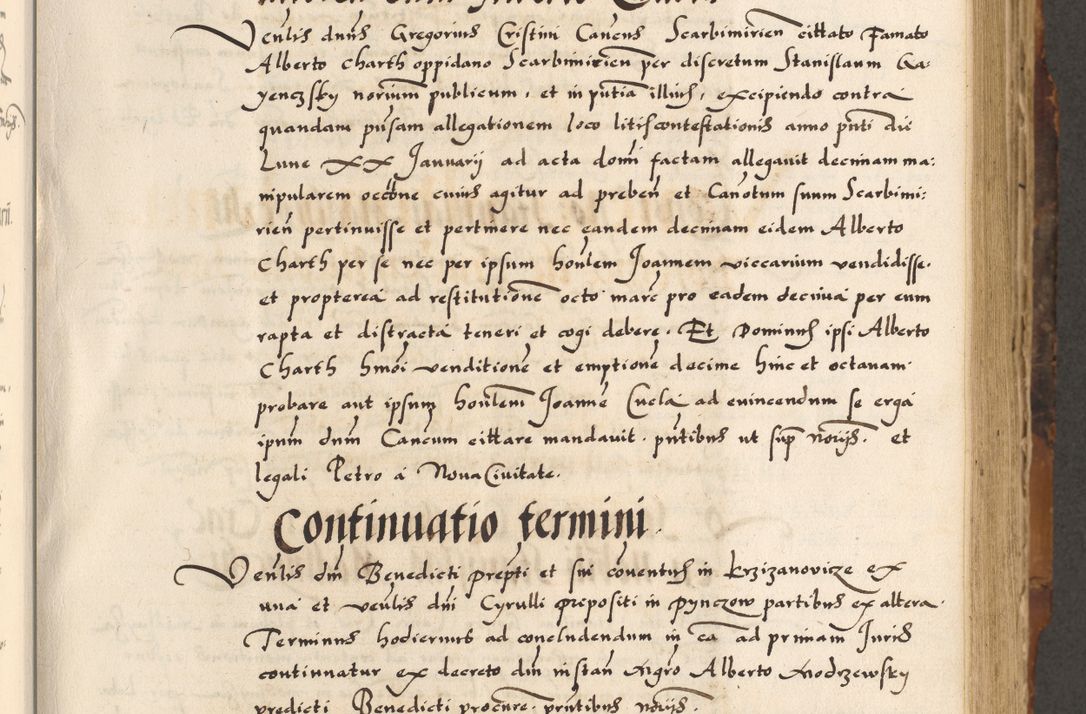 Venlis dnus Gregorius Cristini Canens Scarbimirien cittato Famato
Alberto Charth oppidano Scarbimirien per discretum Stanislaum Ga-
yenczsky norium publicum, et in pntia illius, excipiendo contra
quandam pnsam allegationem loco litiscontestationis anno pnti die
Lune XX Januarij ad acta domi factam allegavit decimam ma:
nipularem occõne cuius agitur ad preben et Canotum suum Scarbimi:
rien pertinuisse et pertinere nec eandem decimam eidem Alberto
Charth per se nec per ipsum honlem Joannem viccarium vendidisse.
et propterea ad restitutionē octo marc pro eadem decima per eum
rapta et distracta teneri et cogi debere. Et Dominus ipsi Alberto
Charth hmoi venditionē et emptionē decime hinc et octavam
probare aut ipsum honlem Joannē Cucla ad evincendum se erga
ipnm dnm Cancum cittare mandavit. pntibus ut sup norijs. et
legali Petro a Nova Civitate.
Continuatio termini.
Venlis dni Benedicti prepti et sui conventus in krzizanovicze ex
una et venlis dni Cyrulli prepositi in pynczow partibus ex altera.
Terminus hodiernus ad concludendum in ca ad primam Juris
continuatur ex decreto dni in stan Mgro Alberto Modrzewsky
predicti Benedicti procure. pntibus norijs.